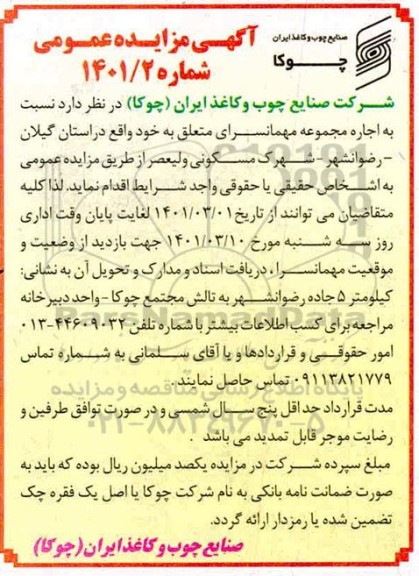 صنایع چوب و کاغذ ایران
چوکا
آگهی مزایده عمومی
شماره ۱۴۰۱/۲
شرکت صنایع چوب و کاغذ ایران (چوکا) در نظر دارد نسبت
به اجاره مجموعه مهمانسرای متعلق به خود واقع دراستان گیلان
- رضوانشهر - شهرک مسکونی ولیعصر از طریق مزایده عمومی
به اشخاص حقیقی یا حقوقی واجد شرایط اقدام نماید. لذا کلیه
متقاضیان می توانند از تاریخ ۱۴۰۱/۰۳/۰۱ لغایت پایان وقت اداری
روز سه شنبه مورخ ۱۴۰۱/۰۳/۱۰ جهت بازدید از وضعیت و
موقعیت مهمانسرا، دریافت اسناد و مدارک و تحویل آن به نشانی:
کیلومتر ۵ جاده رضوانشهر به تالش مجتمع چوکا - واحد دبیرخانه
مراجعه برای کسب اطلاعات بیشتر با شماره تلفن ۴۴۶۰۹۰۳۲-۰۱۳
امور حقوقی و قراردادها و یا آقای سلمانی به شماره تماس
۰۹۱۱۳۸۲۱۷۷۹ تماس حاصل نمایند.
مدت قرارداد حداقل پنج سال شمسی و در صورت توافق طرفین و
رضایت موجر قابل تمدید می باشد .
مبلغ سپرده شرکت در مزایده یکصد میلیون ریال بوده که باید به
صورت ضمانت نامه بانکی به نام شرکت چوکا یا اصل یک فقره چک
تضمین شده یا رمزدار ارائه گردد.
صنایع چوب و کاغذ ایران (چوکا)
ParsNamadData
پایگاه اطلاع رسانی مناقصه و مزایده
۰۲۱-۸۸۳۴۹۶۷۰-۵